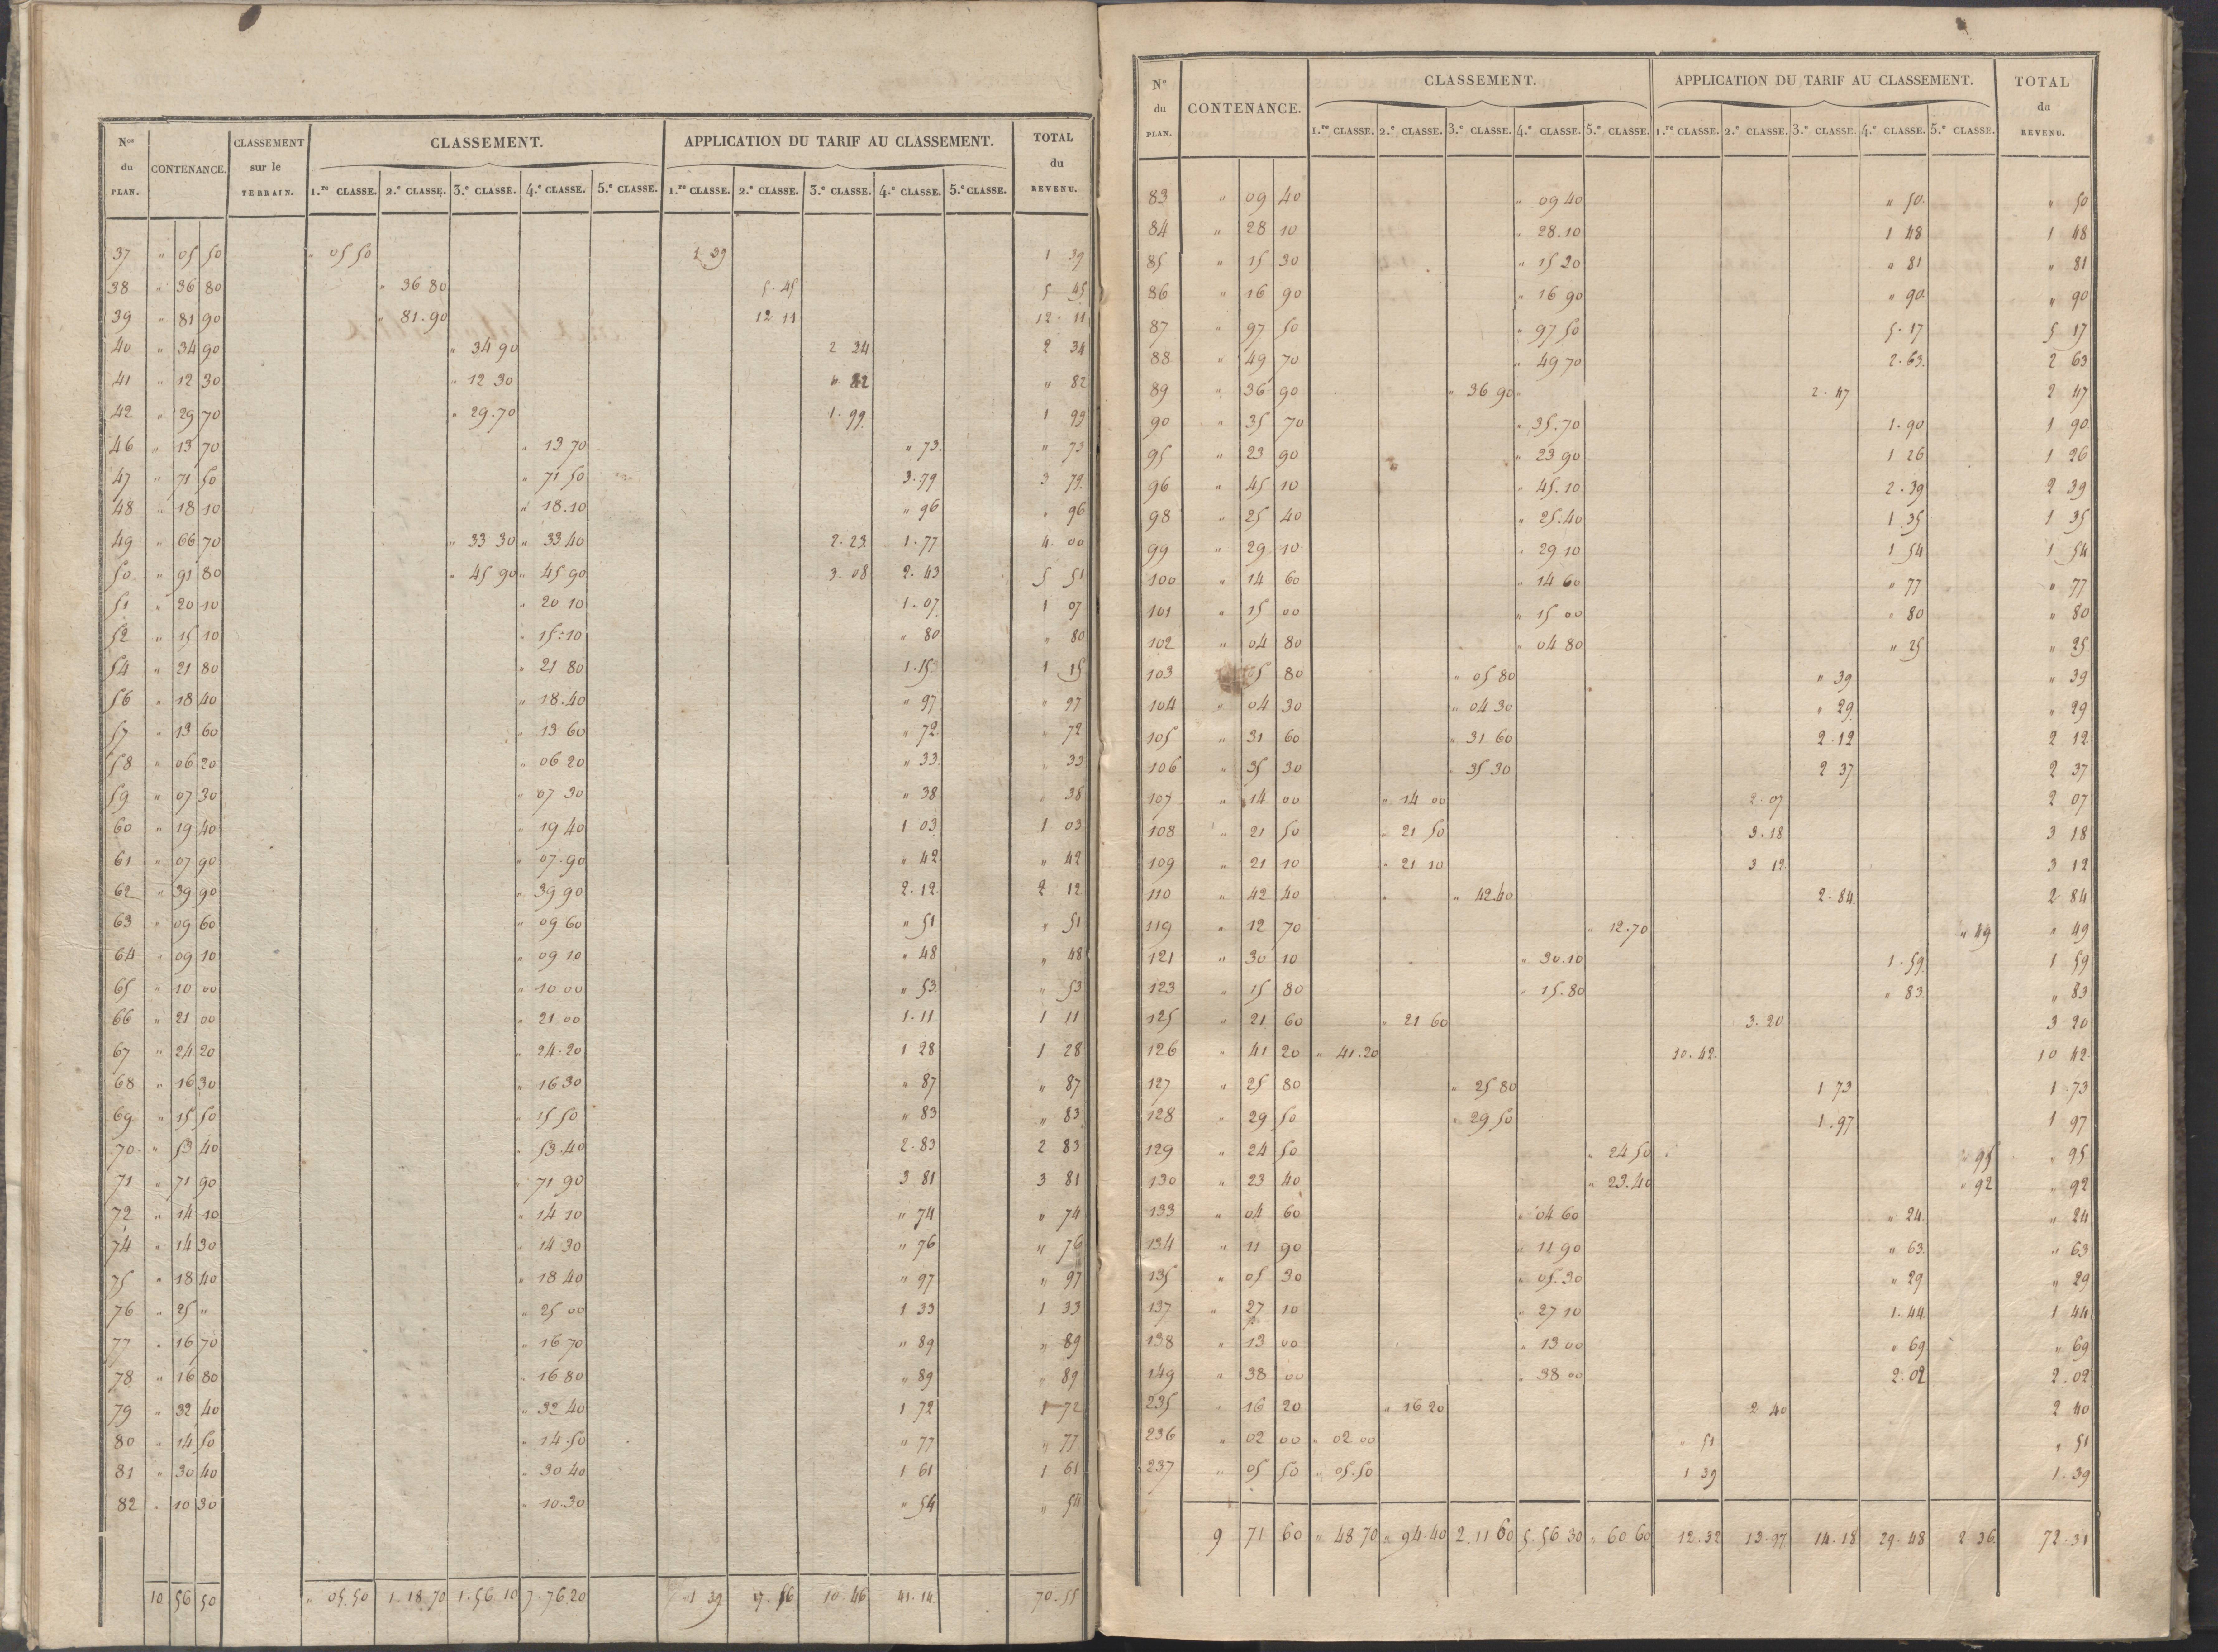 Nos du PLAN. CONTENANCE. CLASSEMENT sur le TERRAIN. CLASSEMENT. APPLICATION DU TARIF AU CLASSEMENT. TOTAL du REVENU.
1.re CLASSE. 2.e CLASSE. 3.e CLASSE. 4.e CLASSE. 5.e CLASSE. 1.re CLASSE. 2.e CLASSE. 3.e CLASSE. 4.e CLASSE. 5.e CLASSE.
37 " 05 50 " 05 50 1 39 1 39
38 " 36 80 " 36 80 5.45 5 45
39 " 81 90 " 81.90 12 11 12 11
40 " 34 90 " 34 90 2 34 2 34
41 " 12 30 " 12 30 " 82 " 82
42 " 29 70 " 29.70 1.99 1 99
46 " 13 70 " 13 70 " 73 " 73
47 " 71 50 " 71 50 3.79 3 79
48 " 18 10 " 18.10 " 96 " 96
49 " 66 70 " 33 30 " 33 40 2.23 1.77 4 00
50 " 91 80 " 45 90 " 45 90 3.08 2.43 5 51
51 " 20 10 " 20 10 1.07 1 07
52 " 15 10 " 15.10 " 80 " 80
54 " 21 80 " 21 80 1.15 1 15
56 " 18 40 " 18.40 " 97 " 97
57 " 13 60 " 13 60 " 72 " 72
58 " 06 20 " 06 20 " 33 " 33
59 " 07 30 " 07 30 " 38 " 38
60 " 19 40 " 19 40 1 03 1 03
61 " 07 90 " 07.90 " 42 " 42
62 " 39 90 " 39 90 2.12 2 12
63 " 09 60 " 09 60 " 51 " 51
64 " 09 10 " 09 10 " 48 " 48
65 " 10 00 " 10 00 " 53 " 53
66 " 21 00 " 21 00 1.11 1 11
67 " 24 20 " 24.20 1 28 1 28
68 " 16 30 " 16 30 " 87 " 87
69 " 15 50 " 15 50 " 83 " 83
70 " 53 40 " 53.40 2.83 2 83
71 " 71 90 " 71 90 3 81 3 81
72 " 14 10 " 14 10 " 74 " 74
74 " 14 30 " 14 30 " 76 " 76
75 " 18 40 " 18 40 " 97 " 97
76 " 25 " " 25 00 1 33 1 33
77 " 16 70 " 16 70 " 89 " 89
78 " 16 80 " 16 80 " 89 " 89
79 " 32 40 " 32 40 1 72 1 72
80 " 14 50 " 14.50 " 77 " 77
81 " 30 40 " 30 40 1 61 1 61
82 " 10 30 " 10.30 " 54 " 54
10 56 50 " 05.50 1.18 70 1.56 10 7.76 20 1 39 17.56 10.46 41.14 70.55
No du PLAN. CONTENANCE. CLASSEMENT. APPLICATION DU TARIF AU CLASSEMENT. TOTAL du REVENU.
1.re CLASSE. 2.e CLASSE. 3.e CLASSE. 4.e CLASSE. 5.e CLASSE. 1.re CLASSE. 2.e CLASSE. 3.e CLASSE. 4.e CLASSE. 5.e CLASSE.
83 " 09 40 " 09 40 " 50 " 50
84 " 28 10 " 28.10 1 48 1 48
85 " 15 30 " 15 30 " 81 " 81
86 " 16 90 " 16 90 " 90 " 90
87 " 97 50 " 97 50 5.17 5 17
88 " 49 70 " 49 70 2.63 2 63
89 " 36 90 " 36 90 2.47 2 47
90 " 35 70 " 35.70 1.90 1 90
95 " 23 90 " 23 90 1 26 1 26
96 " 45 10 " 45.10 2.39 2 39
98 " 25 40 " 25.40 1.35 1 35
99 " 29 10 " 29 10 1 54 1 54
100 " 14 60 " 14 60 " 77 " 77
101 " 15 00 " 15 00 " 80 " 80
102 " 04 80 " 04 80 " 25 " 25
103 05 80 " 05 80 " 39 " 39
104 " 04 30 " 04 30 " 29 " 29
105 " 31 60 " 31 60 2.12 2 12
106 " 35 30 " 35 30 2 37 2 37
107 " 14 00 " 14 00 2.07 2 07
108 " 21 50 " 21 50 3.18 3 18
109 " 21 10 " 21 10 3 12 3 12
110 " 42 40 " 42.40 2.84 2 84
119 " 12 70 " 12.70 " 49 " 49
121 " 30 10 " 30.10 1.59 1 59
123 " 15 80 " 15.80 " 83 " 83
125 " 21 60 " 21 60 3.20 3 20
126 " 41 20 " 41.20 10.42 10 42
127 " 25 80 " 25 80 1 73 1.73
128 " 29 50 " 29 50 1.97 1 97
129 " 24 50 " 24 50 " 95 " 95
130 " 23 40 " 23.40 " 92 " 92
133 " 04 60 " 04 60 " 24 " 24
134 " 11 90 " 11 90 " 63 " 63
135 " 05 30 " 05.30 " 29 " 29
137 " 27 10 " 27 10 1.44 1 44
138 " 13 00 " 13 00 " 69 " 69
149 " 38 00 " 38 00 2.02 2.02
235 " 16 20 " 16 20 2 40 2 40
236 " 02 00 " 02 00 " 51 " 51
237 " 05 50 " 05.50 1 39 1.39
9 71 60 " 48 70 " 94.40 2.11 60 5.56 30 " 60 60 12.32 13.97 14.18 29.48 2 36 72.31